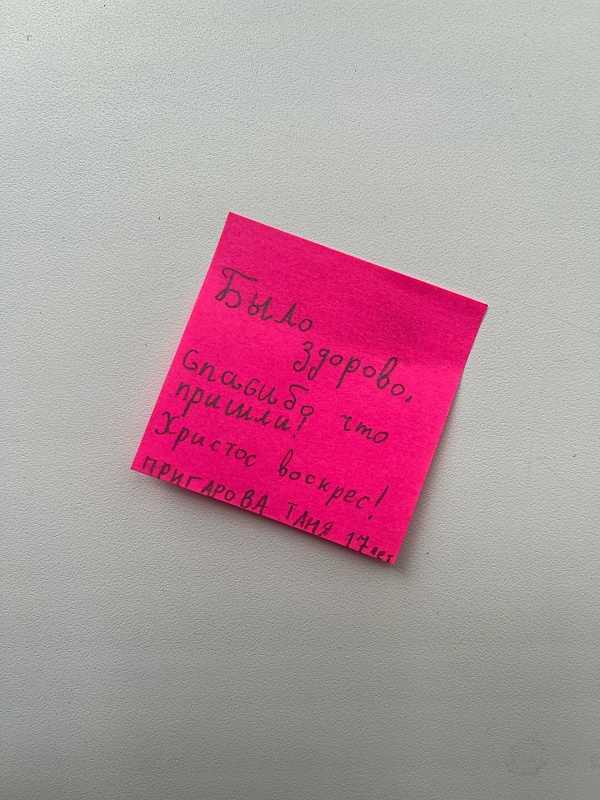 Было
здорово,
Спасибо что
пришли!
Христос воскрес!
ПРИГАРОВА ТАНЯ 17 лет